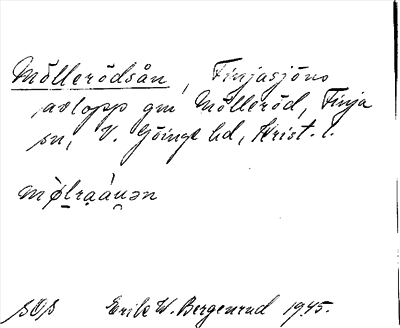 Möllerödsån, Finjasjöns
avlopp gm Mölleröd, Finja
sn, V. Göinge hd, Krist. l.
mø̀lra̤áu̯ən
SOS Erik W. Bergenrud 1945.